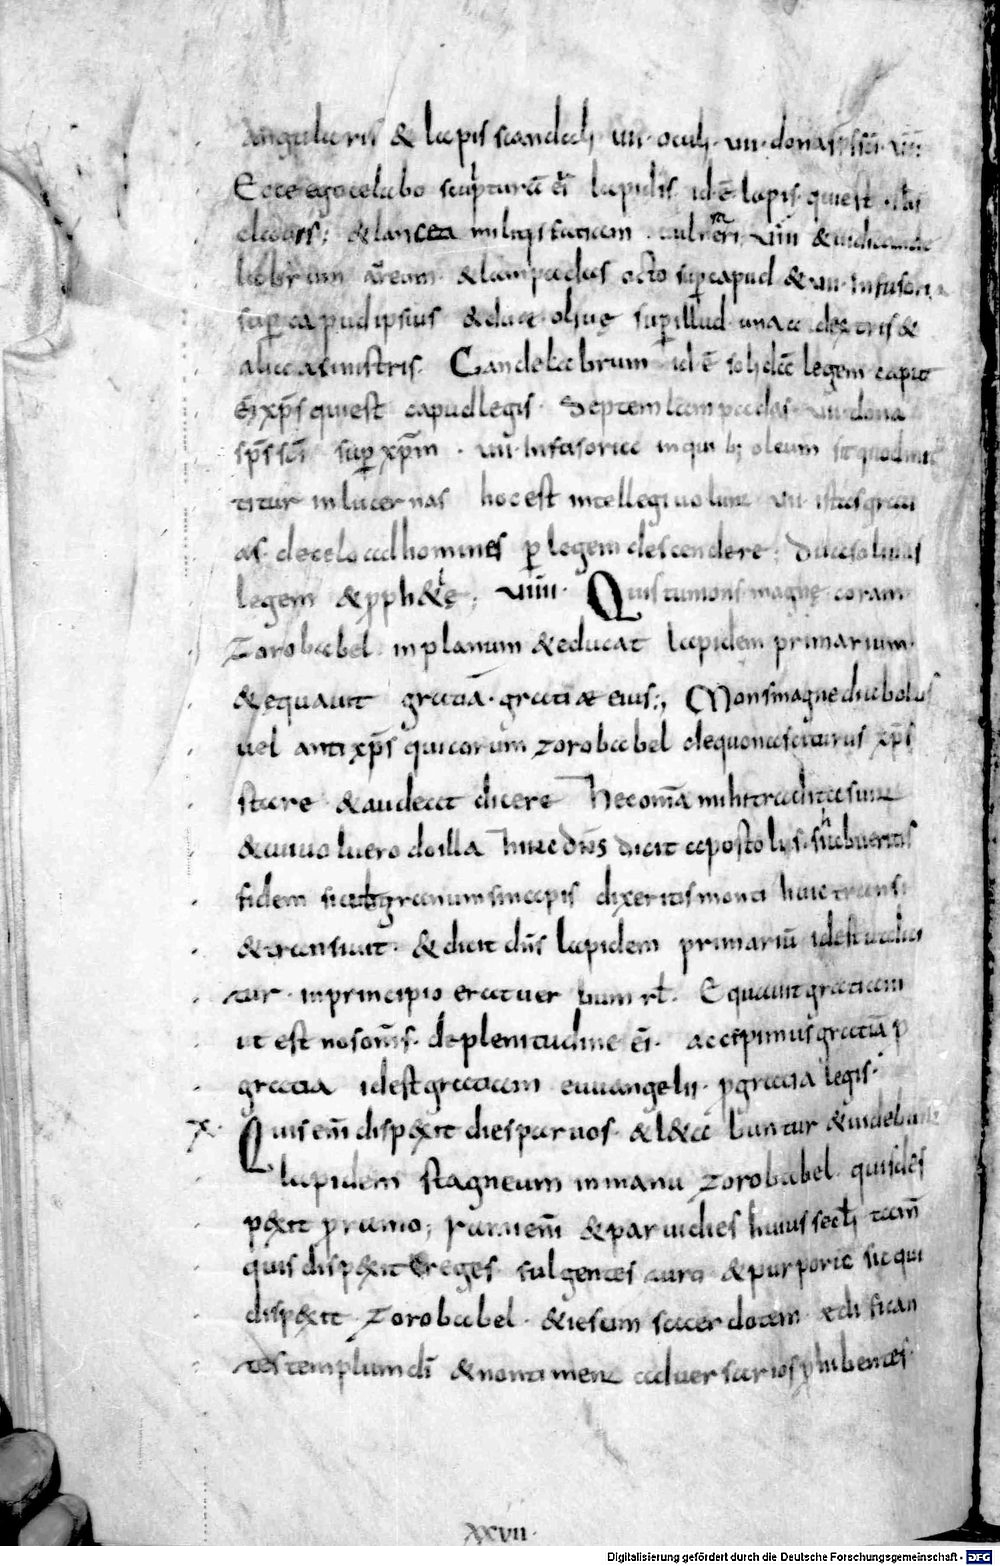 angularis & lapis scandali vii oculi vii dona sp̄s sc̄i viii
Ecce ego celabo sculpturā ei lapidis id ē lapis qui est
clavis; & lancea militis vulneri viiii & vidi cande
labrum aureum & lampadas octo sup capud & vii infusoria
sup capud ipsius & duae olivę sup illud una a dextris &
alia a sinistris. Candelabrum id ē legem caput
ei xp̄s qui est capud legis. Septem lampadas vii dona
sp̄s sc̄i sup xp̄m. vii Infusoria in quib; oleum sit quod mit
titur in lucernas hoc est intellegi volunt vii istas grati
as de celo ad homines p legem descendere; Duas olivas
legem & pph&ę; viiii. Quis tu mons magnę coram
Zorobabel in planum & educat lapidem primarium.
& ęquavit gratiā gratiae eius; Mons magne diabolus
vel antixp̄s qui coram zorobabel de quo nasciturus xp̄s
stare & audeat dicere Hec om̄a mihi tradita sunt
& cui volvero do illa Hinc dn̄s dicit apostolis si habueritis
fidem sicut granum sinapis dixeritis monti huic transi
& transivit. & dicit dn̄s lapidem primariū id est
tur in principio erat verbum rl. Equavit gratiam
ut est nos om̄s de plenitudine ei. accepimus gratiā p
gratia id est gratiam euuangelii p gratia legis.
x. Quis en̄i disp&it dies parvos & l&abuntur & videbunt
lapidem stagneum in manu zorobabel quis des
p&it
quis disp&it reges fulgentes auro & purpora sic qui
disp&it Zorobabel & iesum sacerdotem edifican
tes templum di & non timent adversarios phibentes
xxvii.
Digitalisierung gefördert durch die Deutsche Forschungsgemeinschaft - DFG